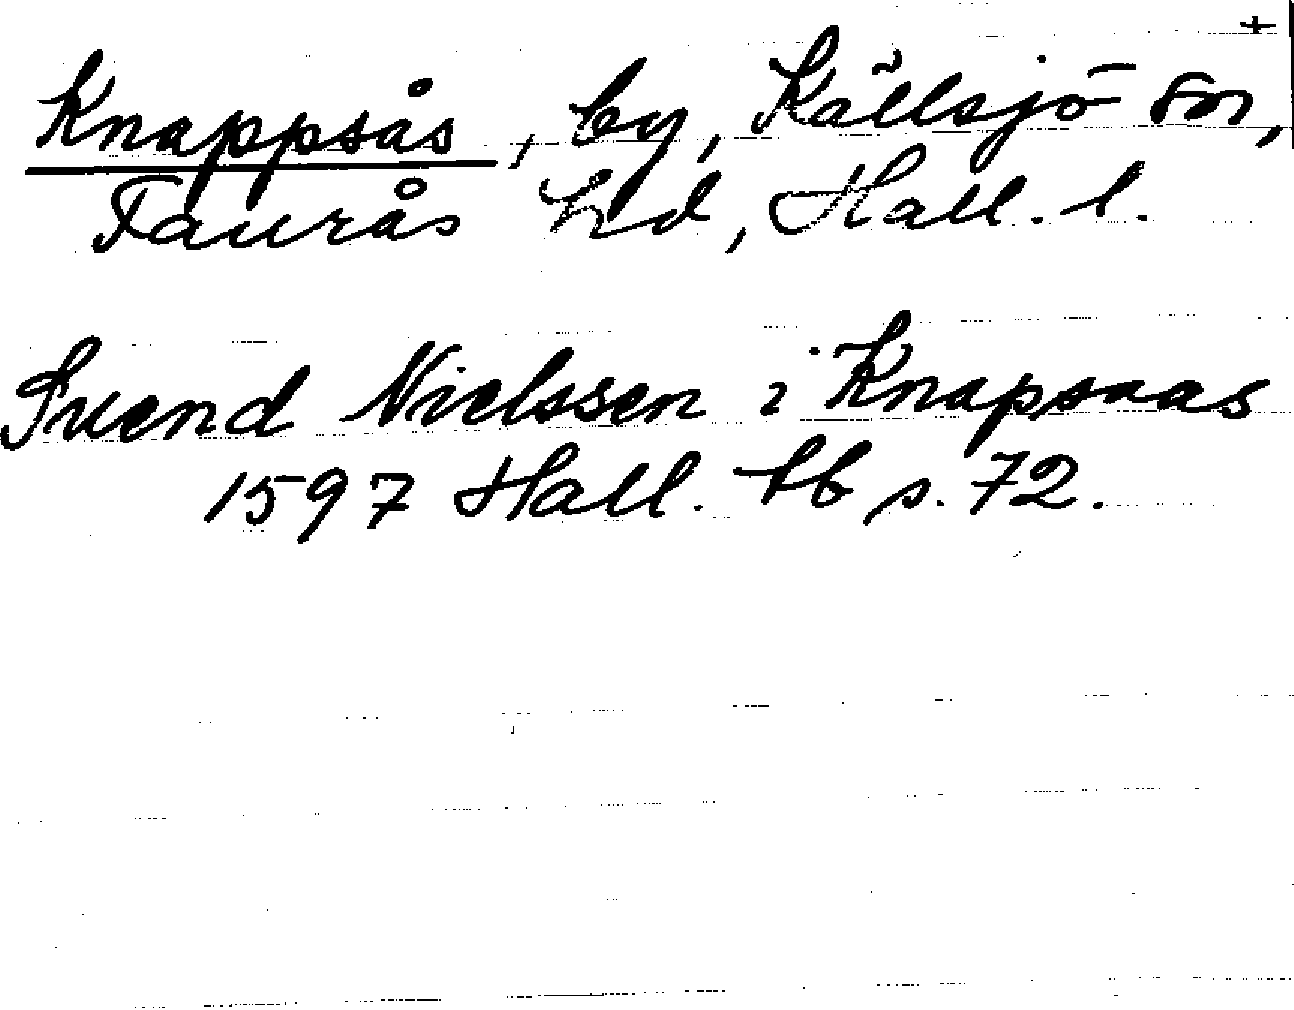 +
Knappsås, by, Källsjö sn,
Faurås hd, Hall. l.
Svend Nielssen i Knapsaas
1597 Hall. tb s. 72.